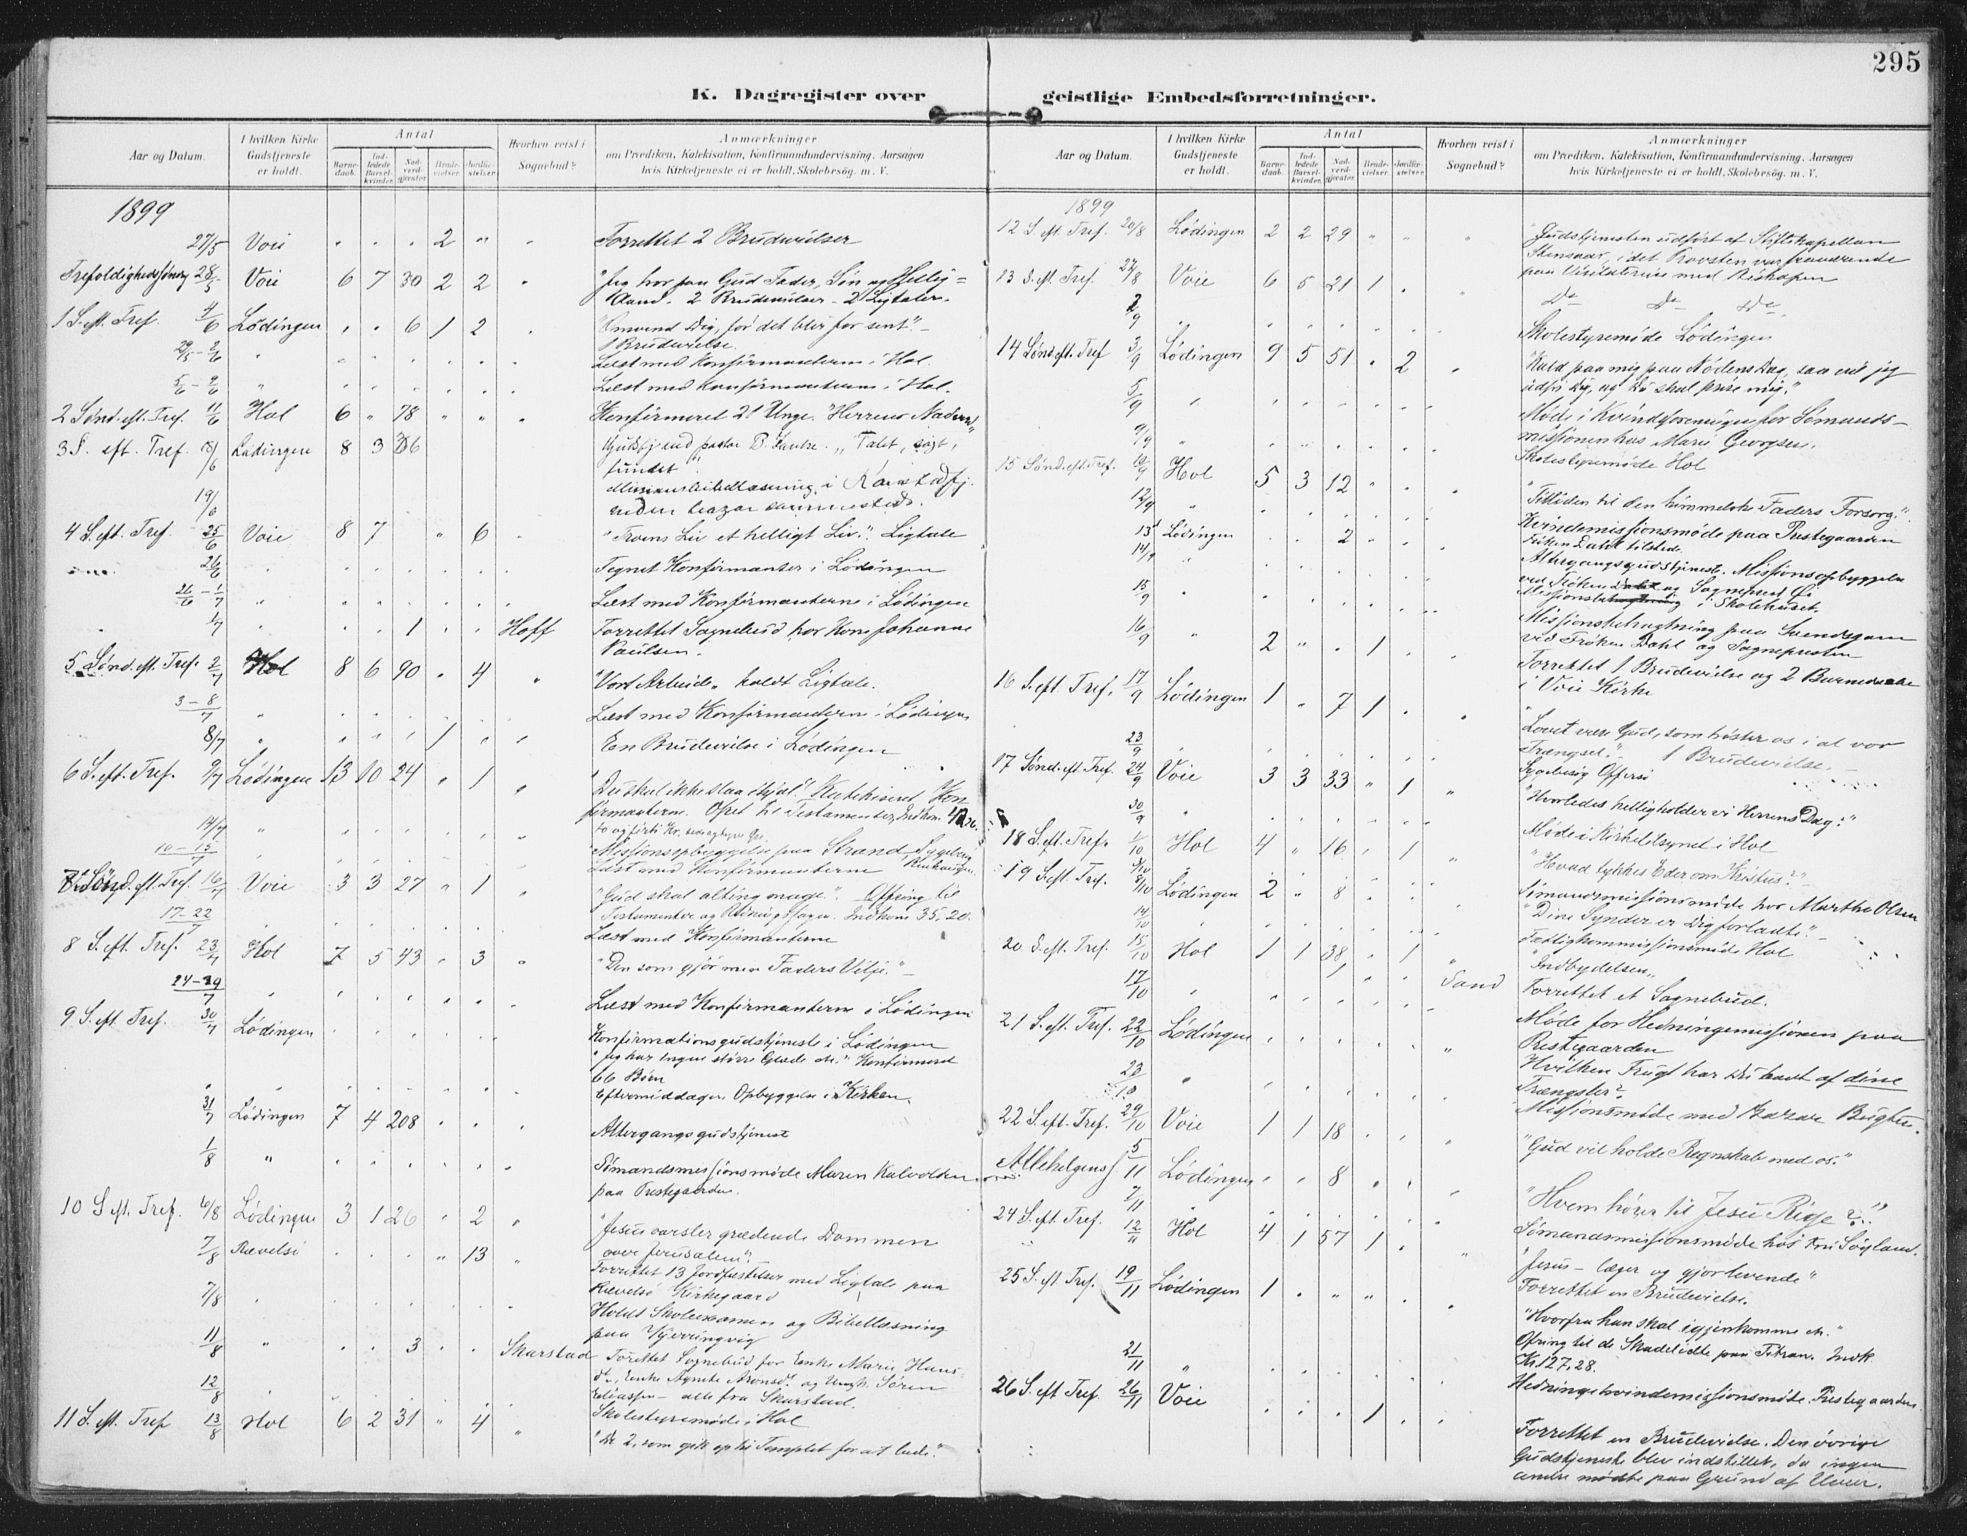 295
K. Dagregister over geistlige Embedsforretninger.
Aar og Datum.
I hvilken Kirke Gudstjeneste er holdt.
Antal
Barnedaab.
Indledede Barselkvinder.
Nadverdgjester.
Brudevielser.
Jordfæstelser.
Hvorhen reist i Sognebud?
Anmærkninger
om Prædiken, Katekisation, Konfirmandundervisning. Aarsagen
hvis Kirketjeneste ei er holdt. Skolebesøg. m. V.
1899
27/5 Voie 2 Forrettet 2 Brudevielser
Trefoldighedssøndag 28/5 Voie 6 7 30 2 2 "Jeg tror paa Gud Fader, Søn og Hellig=
Aand. 2 Brudevielser - 2 Ligtaler.
1 S. eft. Tref. 4/6 Lødingen 6 1 2 "Omvend Dig, før det blir for sent".
1 Brudevielse.
29/5 - 2/6 Læst med Konfirmanterne i Hol.
5/6 - 9/6 Læst med Konfirmanterne i Hol.
2 Sønd. eft. Tref. 11/6 Hol 6 78 Konfirmeret 21 Unge. "Herrens Nadvere"
3 S. eft. Tref. 18/6 Lødingen 8 3 36 "Tabt, søgt,
fundet"
19/6
4 S. eft. Tref. 25/6 Voie 8 7 6 "Troens Liv et helligt Liv". Ligtale
26/6 Tegnet Konfirmanter i Lødingen
26/6 - 1/7 Læst med Konfirmanterne i Lødingen
1/7 1 Hoff Forrettet Sognebud hos Kone Johanne
Paulsen.
5 Sønd. eft. Tref. 2/7 Hol 8 6 90 4 "Vort Arbeid" holdt Ligtale.
3-8/7 Læst med Konfirmanterne i Lødingen
8/7 1 En Brudevielse i Lødingen
6 S. eft. Tref. 9/7 Lødingen 13 10 24 1 "Du skal ikke slaa ihjel" Katekiseret Kon
firmanterne. Ofret til Testamenter, Indkom
14/7 Missionsopbyggelse paa Strand,
10-15/7 Læst med Konfirmanterne
7 Sønd. eft. Tref. 16/7 Voie 3 3 27 1 "Gud skal alting mage". Offring til
Testamenter og Indkom 35,20.
17-22/7 Læst med Konfirmanterne
8 S. eft. Tref. 23/7 Hol 7 5 43 3 "Den som gjør min Faders Vilje."
24-29/7 Læst med Konfirmanterne i Lødingen
9 S. eft. Tref. 30/7 Lødingen Konfirmationsgudstjeneste i Lødingen
"Jeg har ingen større Glæde etc." Konfirmeret
66 Børn
Eftermiddagen Opbyggelse i Kirken.
31/7 Lødingen 7 4 208 Altergangsgudstjeneste
1/8 Sømandsmissionsmøde Maren Kalvolden
paa Prestegaarden.
10 S. eft. Tref. 6/8 Lødingen 3 1 26 2 "Jesus varsler grædende Dommen
over Jerusalem".
7/8 Rævelsø 13 Forrettet 13 Jordfæstelser med Ligtale paa
Rævelsø Kirkegaard
7/8 Holdt Skoleexamen og Bibellæsning
paa Kjerringvig
11/8 3 Skarstad Forettet Sognebud for Enke Marie Hans
dr., Enke og Ungk. Søren
Eliassen - alle fra Skarstad.
12/8 Skolestyremøde i Hol
11 S. eft. Tref. 13/8 Hol 6 2 31 4 "De 2, som gik op til Templet for at bede".
Aar og Datum.
I hvilken Kirke Gudstjeneste er holdt.
Antal
Barnedaab.
Indledede Barselkvinder.
Nadverdgjester.
Brudevielser.
Jordfæstelser.
Hvorhen reist i Sognebud?
Anmærkninger
om Prædiken, Katekisation, Konfirmandundervisning. Aarsagen
hvis Kirketjeneste ei er holdt. Skolebesøg. m. V.
1899
12 S. eft. Tref. 20/8 Lødingen 2 2 29 Gudstjenesten udført af Stiftskapellan
Stensaar, idet Provsten var fraværende
paa Visitatsreise med Biskopen
13 S. eft. Tref. 27/8 Voie 6 5 21 1 Do Do Do.
2/9 Skolestyremøde Lødingen
14 Sønd. eft. Tref 3/9 Lødingen 9 5 51 2 "Kald paa mig paa Nødens Dag, saa vil jeg
udfri Dig, og Du skal prise mig."
5/9 Møde i Kvindeforeningen for Sømands-
missionen hos Marie Georgsen.
9/9 Skolestyremøde Hol
15 Sønd. eft. Tref. 10/9 Hol 5 3 12 "Tilliden til den himmelske Faders Forsorg".
12/9 Kvindemissionsmøde paa Prestegaarden
Frøken Dahl tilstede.
13 Lødingen 2 Altergangsgudstjeneste. Missionsopbyggelse
14/9 ved Frøken Dahl og Sognepresten
i Skolehuset.
15/9 Missionsbetragtning paa
ved Frøken Dahl og Sognepresten
16/9 2 1 Forrettet 1 Brudevielse og 2 Barnedaab
i Voie Kirke
16 S. eft. Tref. 17/9 Lødingen 1 7 1 "Lovet være Gud, som trøster os i al vor
Trængsel". 1 Brudevielse.
23/9 Sygebesøg Offersø
17 Sønd. eft. Tref. 24/9 Voie 3 3 33 1 "Hvorledes helligholder vi Herrens Dag?"
30/9 Møde i Kirketilsynet i Hol
18 S. eft. Tref. 1/10 Hol 4 16 1 "Hvad tykkes Eder om Kristus?"
19 S. eft. Tref. 8/10 Lødingen 2 8 Sømandsmissionsmøde hos Marthe Olsen
"Dine Synder er Dig forladte".
14/10 Fattigkommissionsmøde Hol
20 S. eft. Tref. 15/10 Hol 1 1 38 1 "Indbydelsen"
17/10 1 Sand Forrettet et Sognebud.
21 S. eft. Tref. 22/10 Lødingen Møde for Hedningemissionen paa
Prestegaarden
Hvilken Frugt har Du havt af dine
Trængsler?
23/10 Missionsmøde med Bazar
22 S. eft. Tref. 29/10 Voie 1 1 18 "Gud vil holde Regnskab med os."
Allehelgens 5/11 Lødingen 8 "Hvem hører til Jesu Rige?"
7/11 Sømandsmissionsmøde hos Fru
24 S. eft. Tref. 12/11 Hol 4 1 57 1 "Jesus - læger og gjør levende"
Forrettet en Brudevielse.
25 S. eft. Tref. 19/11 Lødingen 1 "Hvorfra han skal igjenkomme etc."
Ofring til de Skadelidte paa Titran. Indk.
Kr. 127,28.
21/11 Hedningekvindemissionsmøde Prestegaarden.
26 S. eft. Tref. 26/11 Voie 1 Forrettet en Brudevielse. Den øvrige
Gudstjeneste blev indstillet, da ingen
andre mødte paa Grund af Uveir.